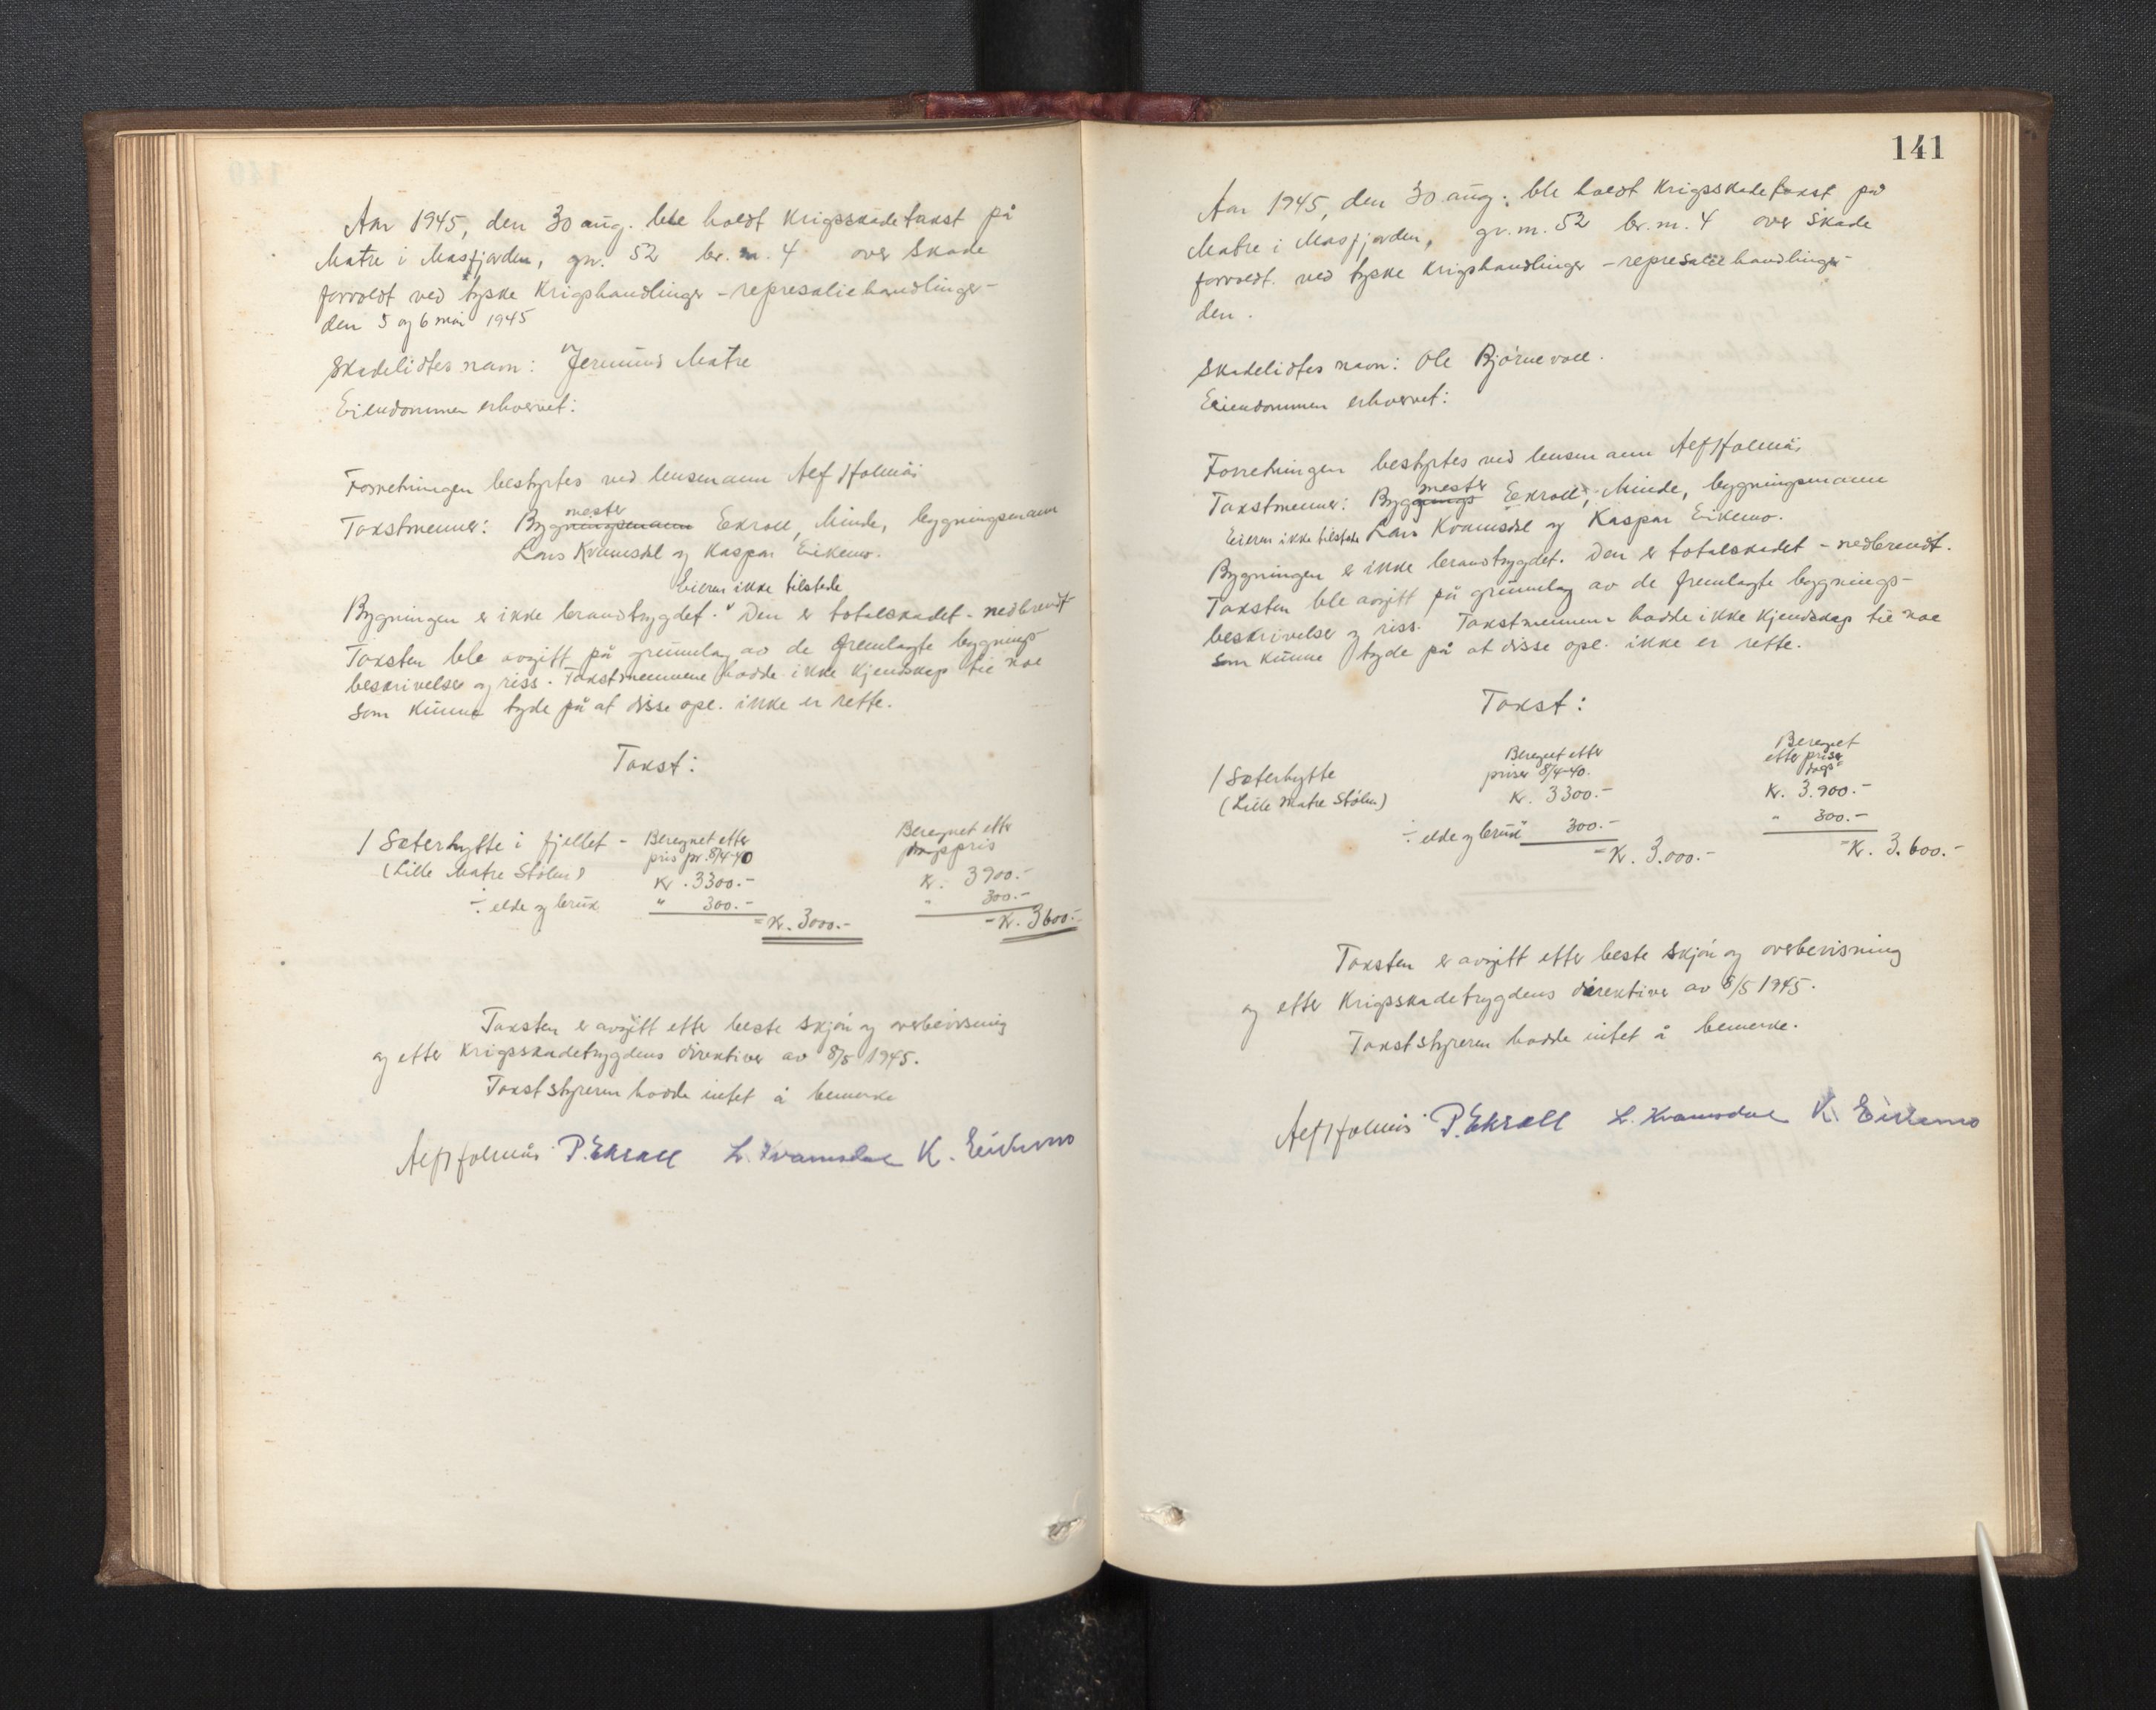 Aar 1945, den 30 aug. ble holdt Krigsskadetakst på
Matre i Masfjorden, gn. 52 br. n. 4 over Skade
forvoldt ved tyske Krigshandlinger - represaliehandlinger -
den 5 og 6 mai 1945
Skadelidtes navn: Jermund Matre
Eiendommen erhvervet:
Forretningen bestyrtes ved lensmann Alf Holmås
mester
Takstmenner: Bygningsmann Ekroll, Minde, bygningsmann
Lars Kvamsdal og Kaspar Eikemo.
Eieren ikke tilstede
Bygningen er ikke brandtrygdet. Den er totalskadet - nedbrendt
Taksten ble avgitt på grunnlag av de fremlagte bygnings-
beskrivelser og riss. Takstmennene hadde ikke Kjendskap til noe
som kunne tyde på at disse opl. ikke er rette.
Takst:
1 Sæterhytte i fjellet - Beregnet etter Beregnet etter
(Lille Matre Stølen) pris pr. 8/4-40 dagspris
Kr. 3300.- Kr. 3900.-
÷ elde og bruk " 300.- " 300.-
= Kr. 3000.- = Kr. 3600.-
Taksten er avgitt etter beste Skjøn og overbevisning
og etter Krigsskadetrygdens direktiver av 8/5 1945.
Takststyreren hadde intet å bemerke
Alf Holmås P. Ekroll L. Kvamsdal K. Eikemo
141
Aar 1945, den 30 aug. ble holdt Krigsskadetakst på
Matre i Masfjorden, gr. n. 52 br. n. 4 over Skade
forvoldt. ved tyske Krigshandlinger - represaliehandlinger -
den.
Skadelidtes navn: Ole Bjørnevoll.
Eiendommen erhvervet:
Forretningen bestyrtes ved lensmann Alf Holmås
mester
Takstmenner: Byggnings Ekroll, Minde, bygningsmann
Eieren ikke tilstede Lars Kvamsdal og Kaspar Eikemo.
Bygningen er ikke brandtrygdet. Den er totalskadet - nedbrendt.
Taksten ble avgitt på grunnlag av de fremlagte bygnings-
beskrivelser og riss. Takstmennene hadde ikke Kjendskap til noe
som kunne tyde på at disse opl. ikke er rette.
Takst:
Beregnet etter Beregnet
1 Sæterhytte priser 8/4-40. etter priser
dags
(Lille Matre Stølen) Kr. 3300.- Kr. 3.900.-
÷ elde og bruk " 300.- " 300.-
= Kr. 3.000.- = Kr. 3.600.-
Taksten er avgitt etter beste Skjøn og overbevisning
og etter Krigsskadetrygdens direktiver av 8/5 1945.
Takststyreren hadde intet å bemerke.
Alf Holmås P. Ekroll L. Kvamsdal K. Eikemo